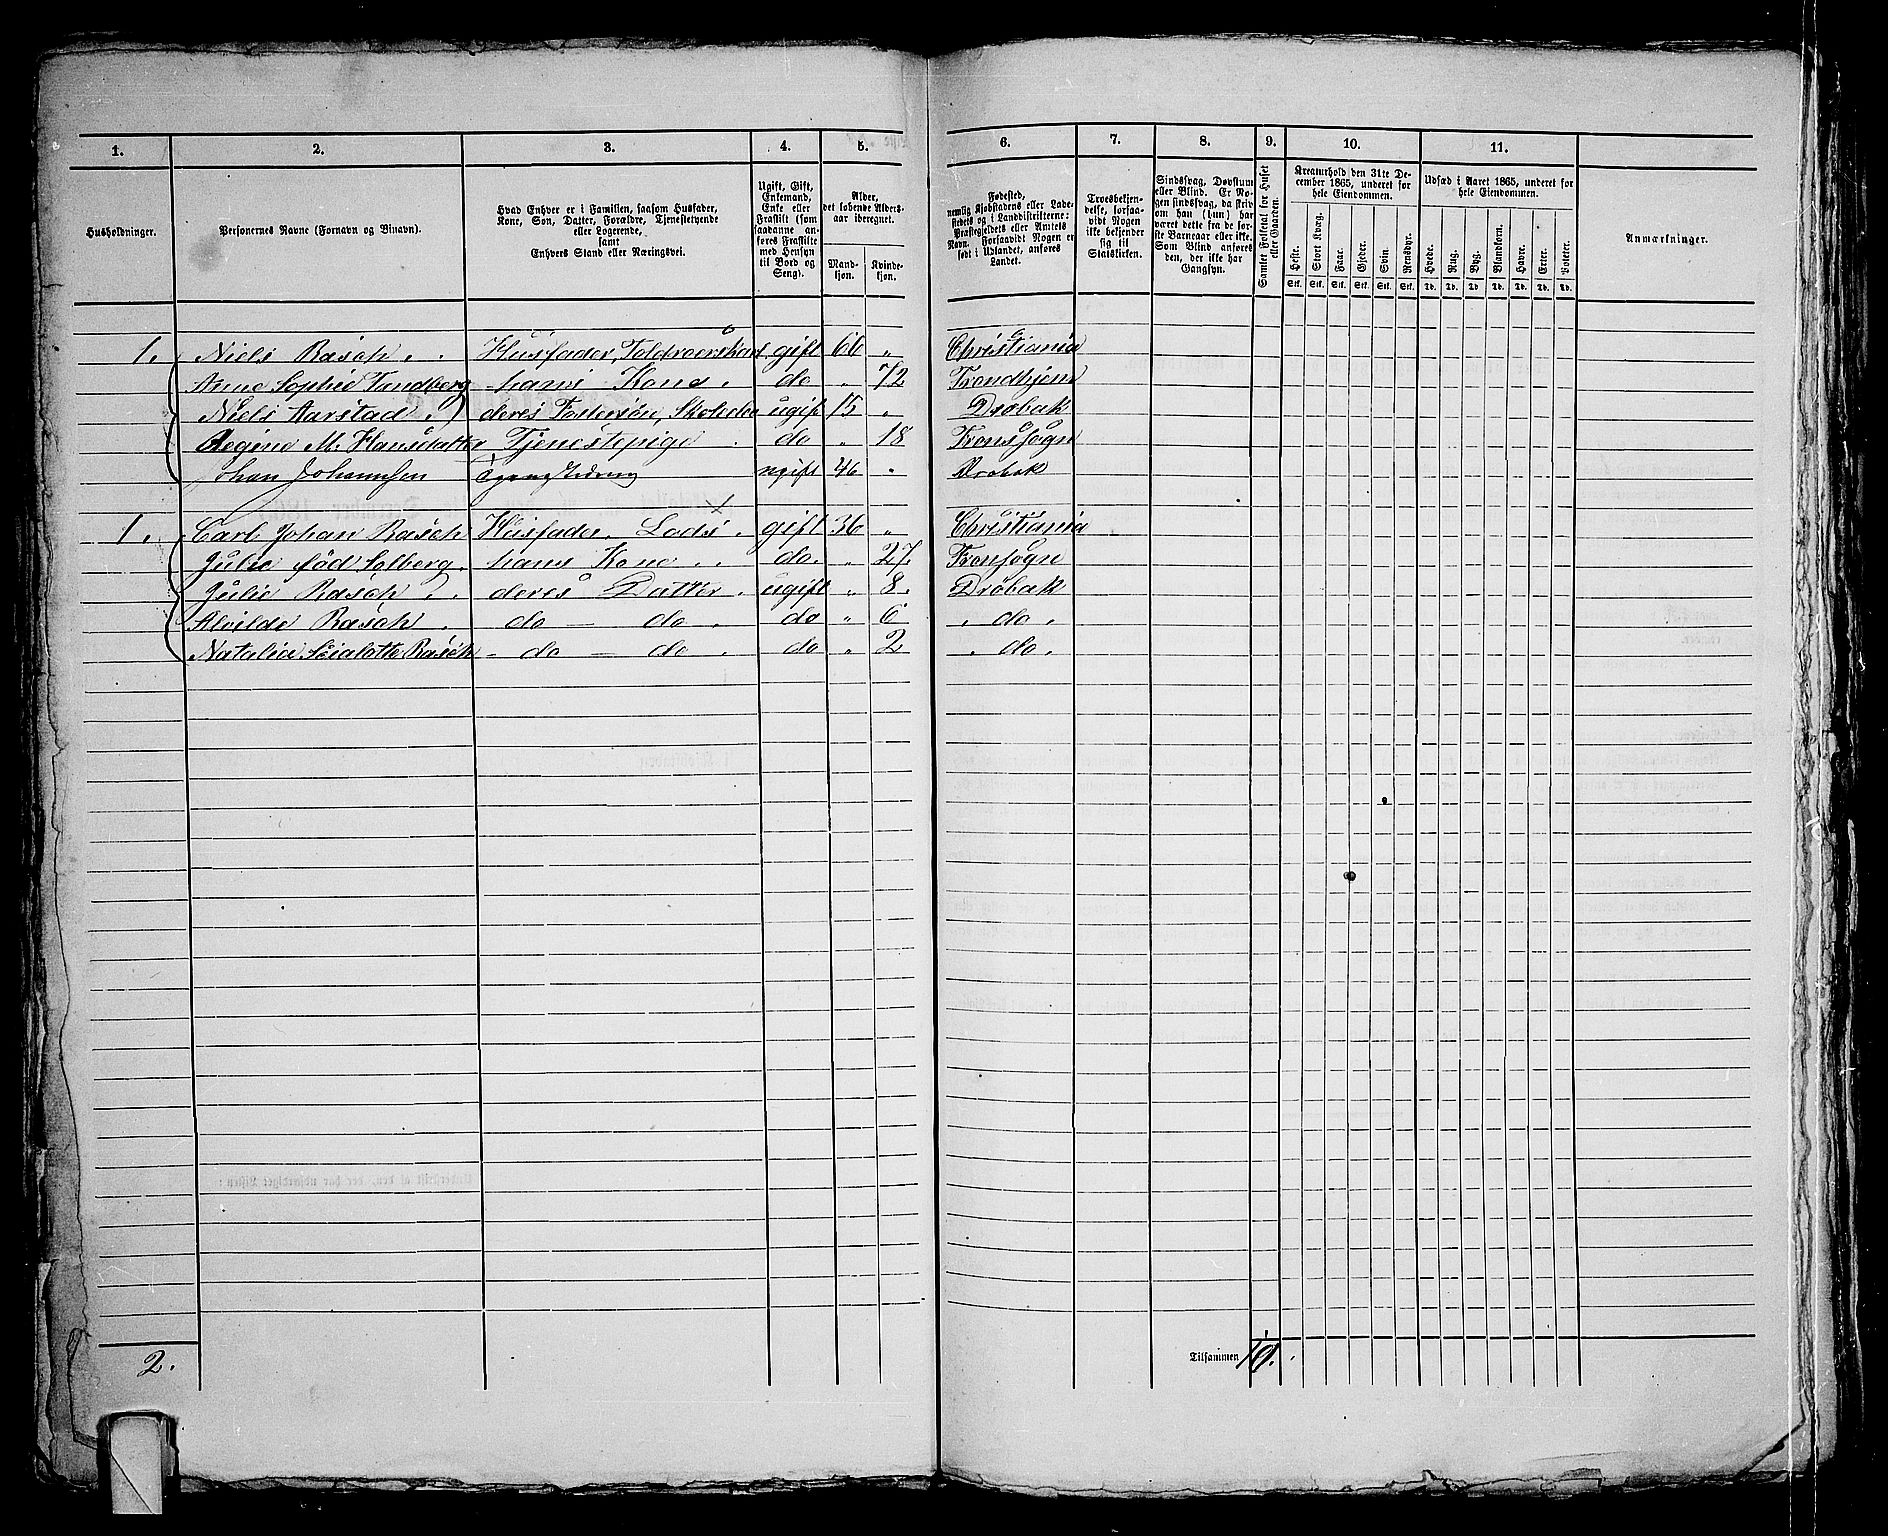 1. 2. 3. 4. 5. 6. 7. 8. 9. 10. 11.
Husholdninger.
Personernes Navne (Fornavn og Binavn).
Hvad Enhver er i Familien, saasom Husfader,
Kone, Søn, Datter, Forældre, Tjenestetyende
eller Logerende,
samt
Enhvers Stand eller Næringsvei.
Ugift, Gift,
Enkemand,
Enke eller
Fraskilt (som
saadanne an-
føres Fraskilte
med Hensyn
til Bord og
Seng).
Alder,
det løbende Alders-
aar iberegnet.
Mand-
kjøn.
Kvinde-
kjøn.
Fødested,
nemlig Kjøbstadens eller Lade-
stedets og i Landdistrikterne:
Præstegjeldets eller Amtets
Navn. Forsaavidt Nogen er
født i Udlandet, anføres
Landet.
Troesbekjen-
delse, forsaa-
vidt Nogen
ikke bekjender
sig til
Statskirken.
Sindssvag, Døvstum
eller Blind. Er No-
gen sindssvag, da skriv
om han (hun) har
været dette fra de før-
ste Barneaar eller ikke.
Som Blind anføres
den, der ikke har
Gangsyn.
Samlet Folketal for Huset
eller Gaarden.
Kreaturhold den 31te De-
cember 1865, underet for
hele Eiendommen.
Heste. Stort Kvæg. Faar. Gjeder. Svin. Rensdyr.
Stk. Stk. Stk. Stk. Stk. Stk.
Udsæd i Aaret 1865, underet for
hele Eiendommen.
Hvede. Rug. Byg. Blandkorn. Havre. Erter. Poteter.
Td. Td. Td. Td. Td. Td. Td.
Anmærkninger.
1. Niels Rasch. Husfader, gift 66 „ Christiania
Anne Sophie Tandberg hans Kone. do „ 72 Trondhjem
Niels Aarstad. deres Fostersøn, ugift 15 „ Drøbak
Regine M. Hansdatter Tjenestepige. do „ 18 Fronsogn
Johan Johannsen ugift 46 „ Drøbak
1. Carl Johan Rasch Husfader. Lods. gift 36 „ Christiania
Julie fød Solberg. hans Kone. do. „ 27. Fronsogn
Julie Rasch. deres Datter. ugift „ 8. Drøbak
Alvilde Rasch. do — do. do „ 6 „ do.
Natalia Rasch - do — do. do „ 2 „ do.
2.
Tilsammen 10.